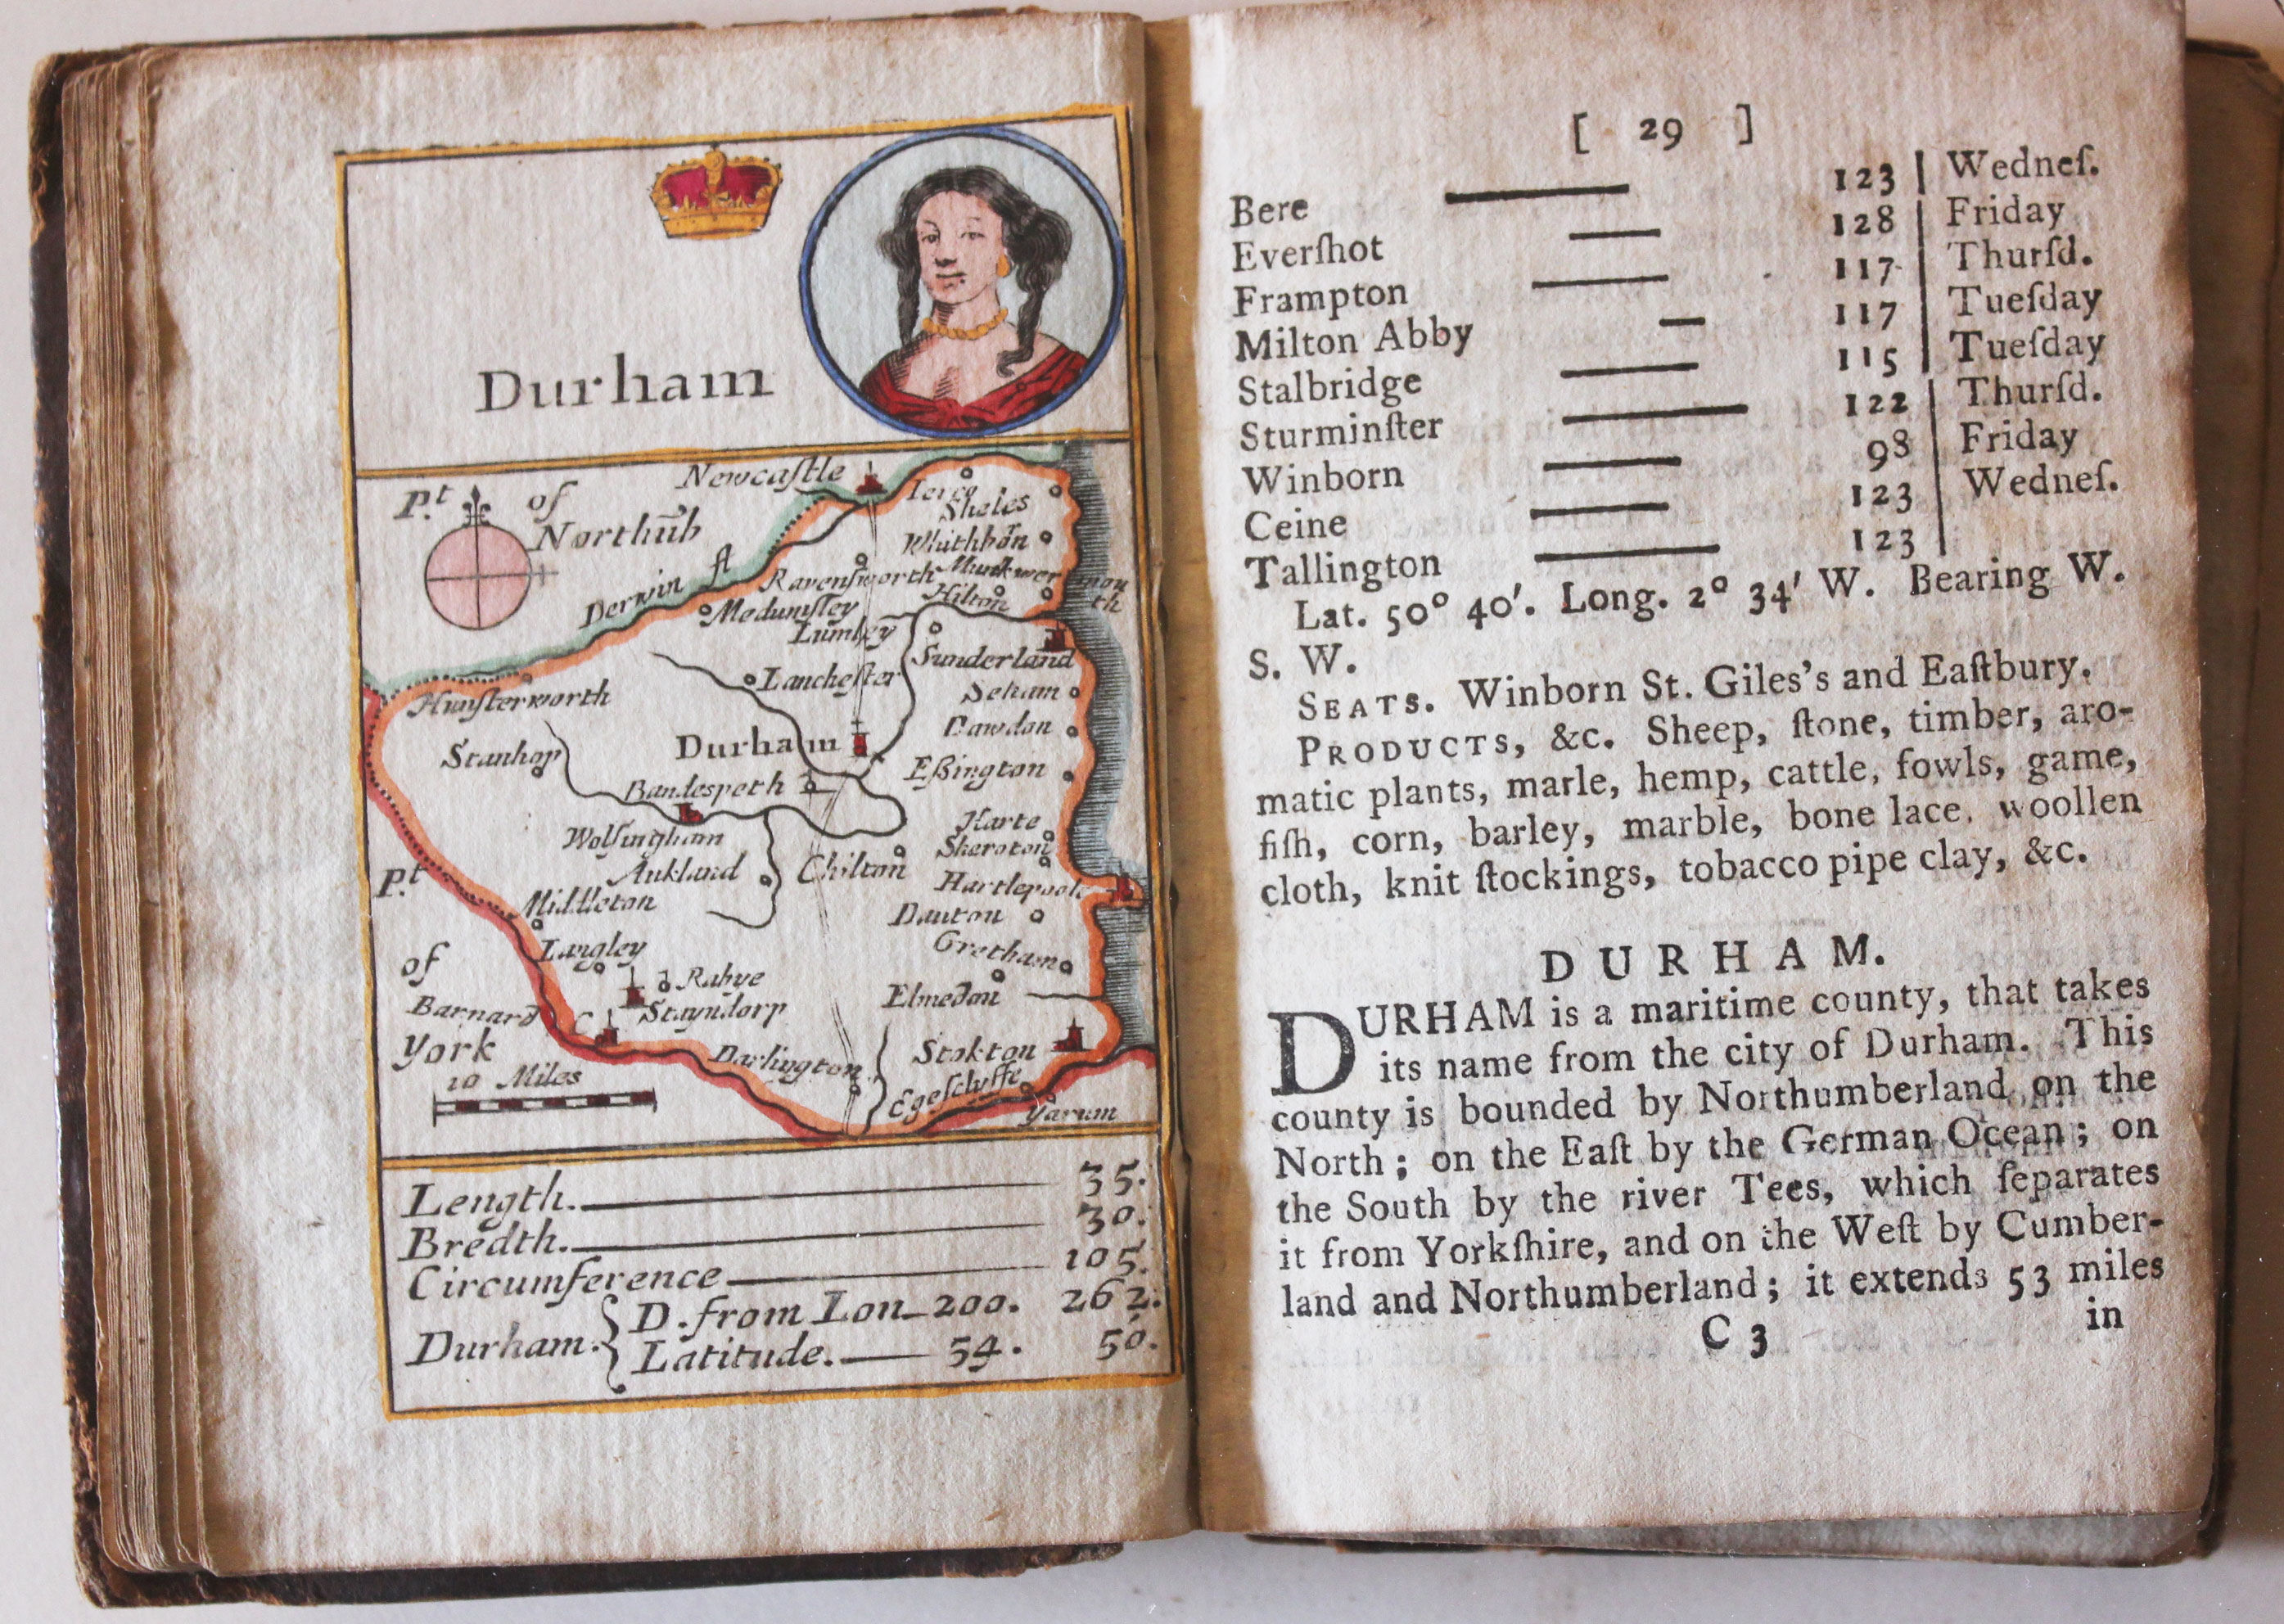 Durham
Newcaſtle
P.t of
Northūb
Sheles
Whithbōn
Derwin fl
Ravenſworth
Munkwermouth
Hilton
Medumſley
Lumley
Lancheſter
Sunderland
Seham
Hunſterworth
Dawdon
Stanhop
Durham
Eßington
Bandespeth
Harte
Wolſingham
Sheraton
Aukland
Chilton
Hartlepool
P.t
Middleton
Dauton
Langley
Gretham
of
Rabye
Elmedon
Barnard C
Stayndorp
York
Darlington
Stokton
10 Miles
Egeſclyffe
Yarum
Length. 35.
Bredth. 30.
Circumference 105.
Durham. D. from Lon 200. 262.
Latitude. 54. 50.
[ 29 ]
Bere 123 | Wedneſ.
Everſhot 128 | Friday
Frampton 117 | Thurſd.
Milton Abby 117 | Tueſday
Stalbridge 115 | Tueſday
Sturminſter 122 | Thurſd.
Winborn 98 | Friday
Ceine 123 | Wedneſ.
Tallington 123 |
Lat. 50° 40'. Long. 2° 34' W. Bearing W.
S. W.
SEATS. Winborn St. Giles's and Eaſtbury.
PRODUCTS, &c. Sheep, ſtone, timber, aro-
matic plants, marle, hemp, cattle, fowls, game,
fiſh, corn, barley, marble, bone lace, woollen
cloth, knit ſtockings, tobacco pipe clay, &c.
DURHAM.
DURHAM is a maritime county, that takes
its name from the city of Durham. This
county is bounded by Northumberland on the
North; on the Eaſt by the German Ocean; on
the South by the river Tees, which ſeparates
it from Yorkſhire, and on the Weſt by Cumber-
land and Northumberland; it extends 53 miles
C 3 in